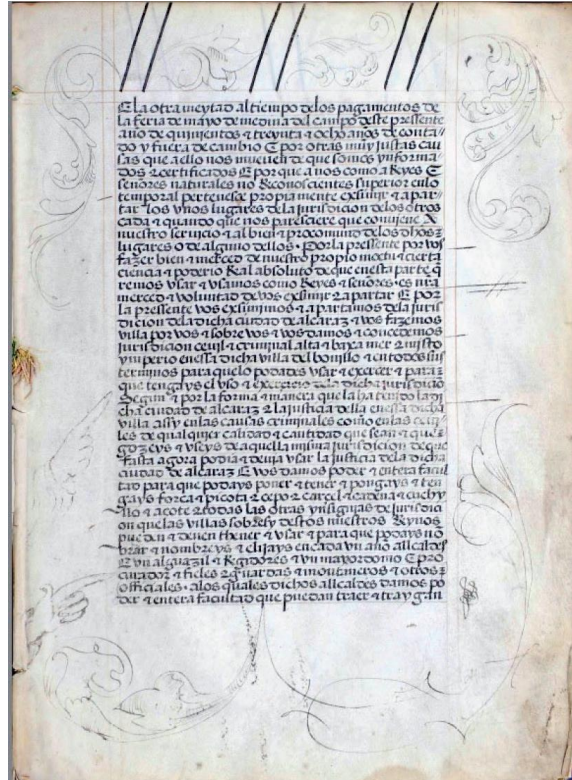 E la otra meytad al tiempo delos pagamentos de
la feria de mayo de medina del campo deste pressente
año de quinientos & treynta & ocho años de conta
do y fuera de cambio E por otras muy justas cau
sas que a ello nos mueven de que somos ynforma
dos & certificados E porque a nos como a Reyes E
señores naturales no Reconoscientes superior enlo
temporal pertenesçe propiamente exsimir & apar
tar los vnos lugares dela Jurisdicion delos otros
cada & quando que nos paresciere que conviene A
nuestro servicio & al bien & procomund delos dhos
lugares o de alguno dellos · Por la pressente por vos
fazer bien & merced de nuestro propio motu & cierta
ciencia & poderio Real absoluto de que enesta parte q
remos vsar & vsamos como Reyes & señores · es nra
merced & voluntad de vos exsimir & apartar E por
la pressente vos exsimimos & apartamos dela juris
dicion dela dicha ciudad de alcaraz & vos fazemos
villa por vos & sobre vos & vos damos & concedemos
jurisdicion ceuil & criminal alta & baxa mer & misto
ymperio enessa dicha villa del bonillo & entodos sus
terminos para quelo podades vsar & exercer & para
que tengays el vso & exerçicio dela dicha jurisdicio
Segun & por la forma & manera que la ha tenido la di
cha ciudad de alcaraz & la justicia della enessa dicha
villa assy enlas causas criminales como enlas ceui
les de qualquier calidad & cantidad que sean & que
gozeys & vseys de aquella misma jurisdicion de que
fasta agora podia & deuia vsar la justicia dela dicha
ciudad de alcaraz E vos damos poder & entera facul
tad para que podays poner & tener & pongays & ten
gays forca & picota & cepo & carcel & cadena & cuchy
llo & açote & todas las otras ynsignias de jurisdici
on que las villas sobre sy destos nuestros Reynos
pueden & deuen thener & vsar & para que podays nō
brar & nombreys & elijays encada vn año allcaldes
E vn alguazil & Regidores & vn mayordomo E pro
curador & fieles & guardas & montaneros & otros
officiales · alos quales dichos allcaldes damos po
der & entera facultad que puedan traer & traygan